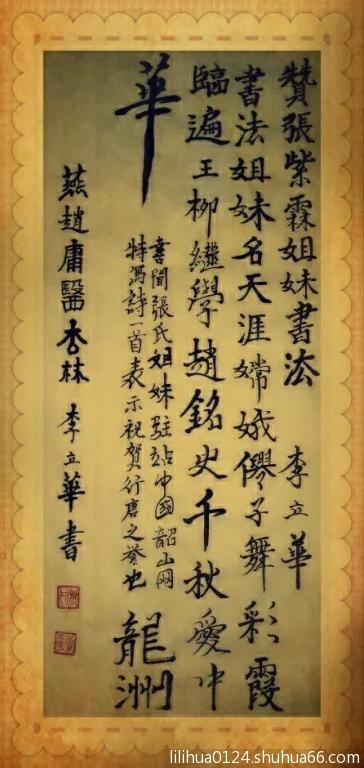 贊張紫霖姐妹書法 李立華
書法姐妹名天涯嫦娥僇子舞彩霞
臨遍王柳繼學趙銘史千秋愛中
華
喜聞張氏姐妹駐站中國韶山网
特寫詩一首表示祝賀行唐之誉也
龍洲
燕趙庸醫杏林 李立華書
lilihua0124.shuhua66.com